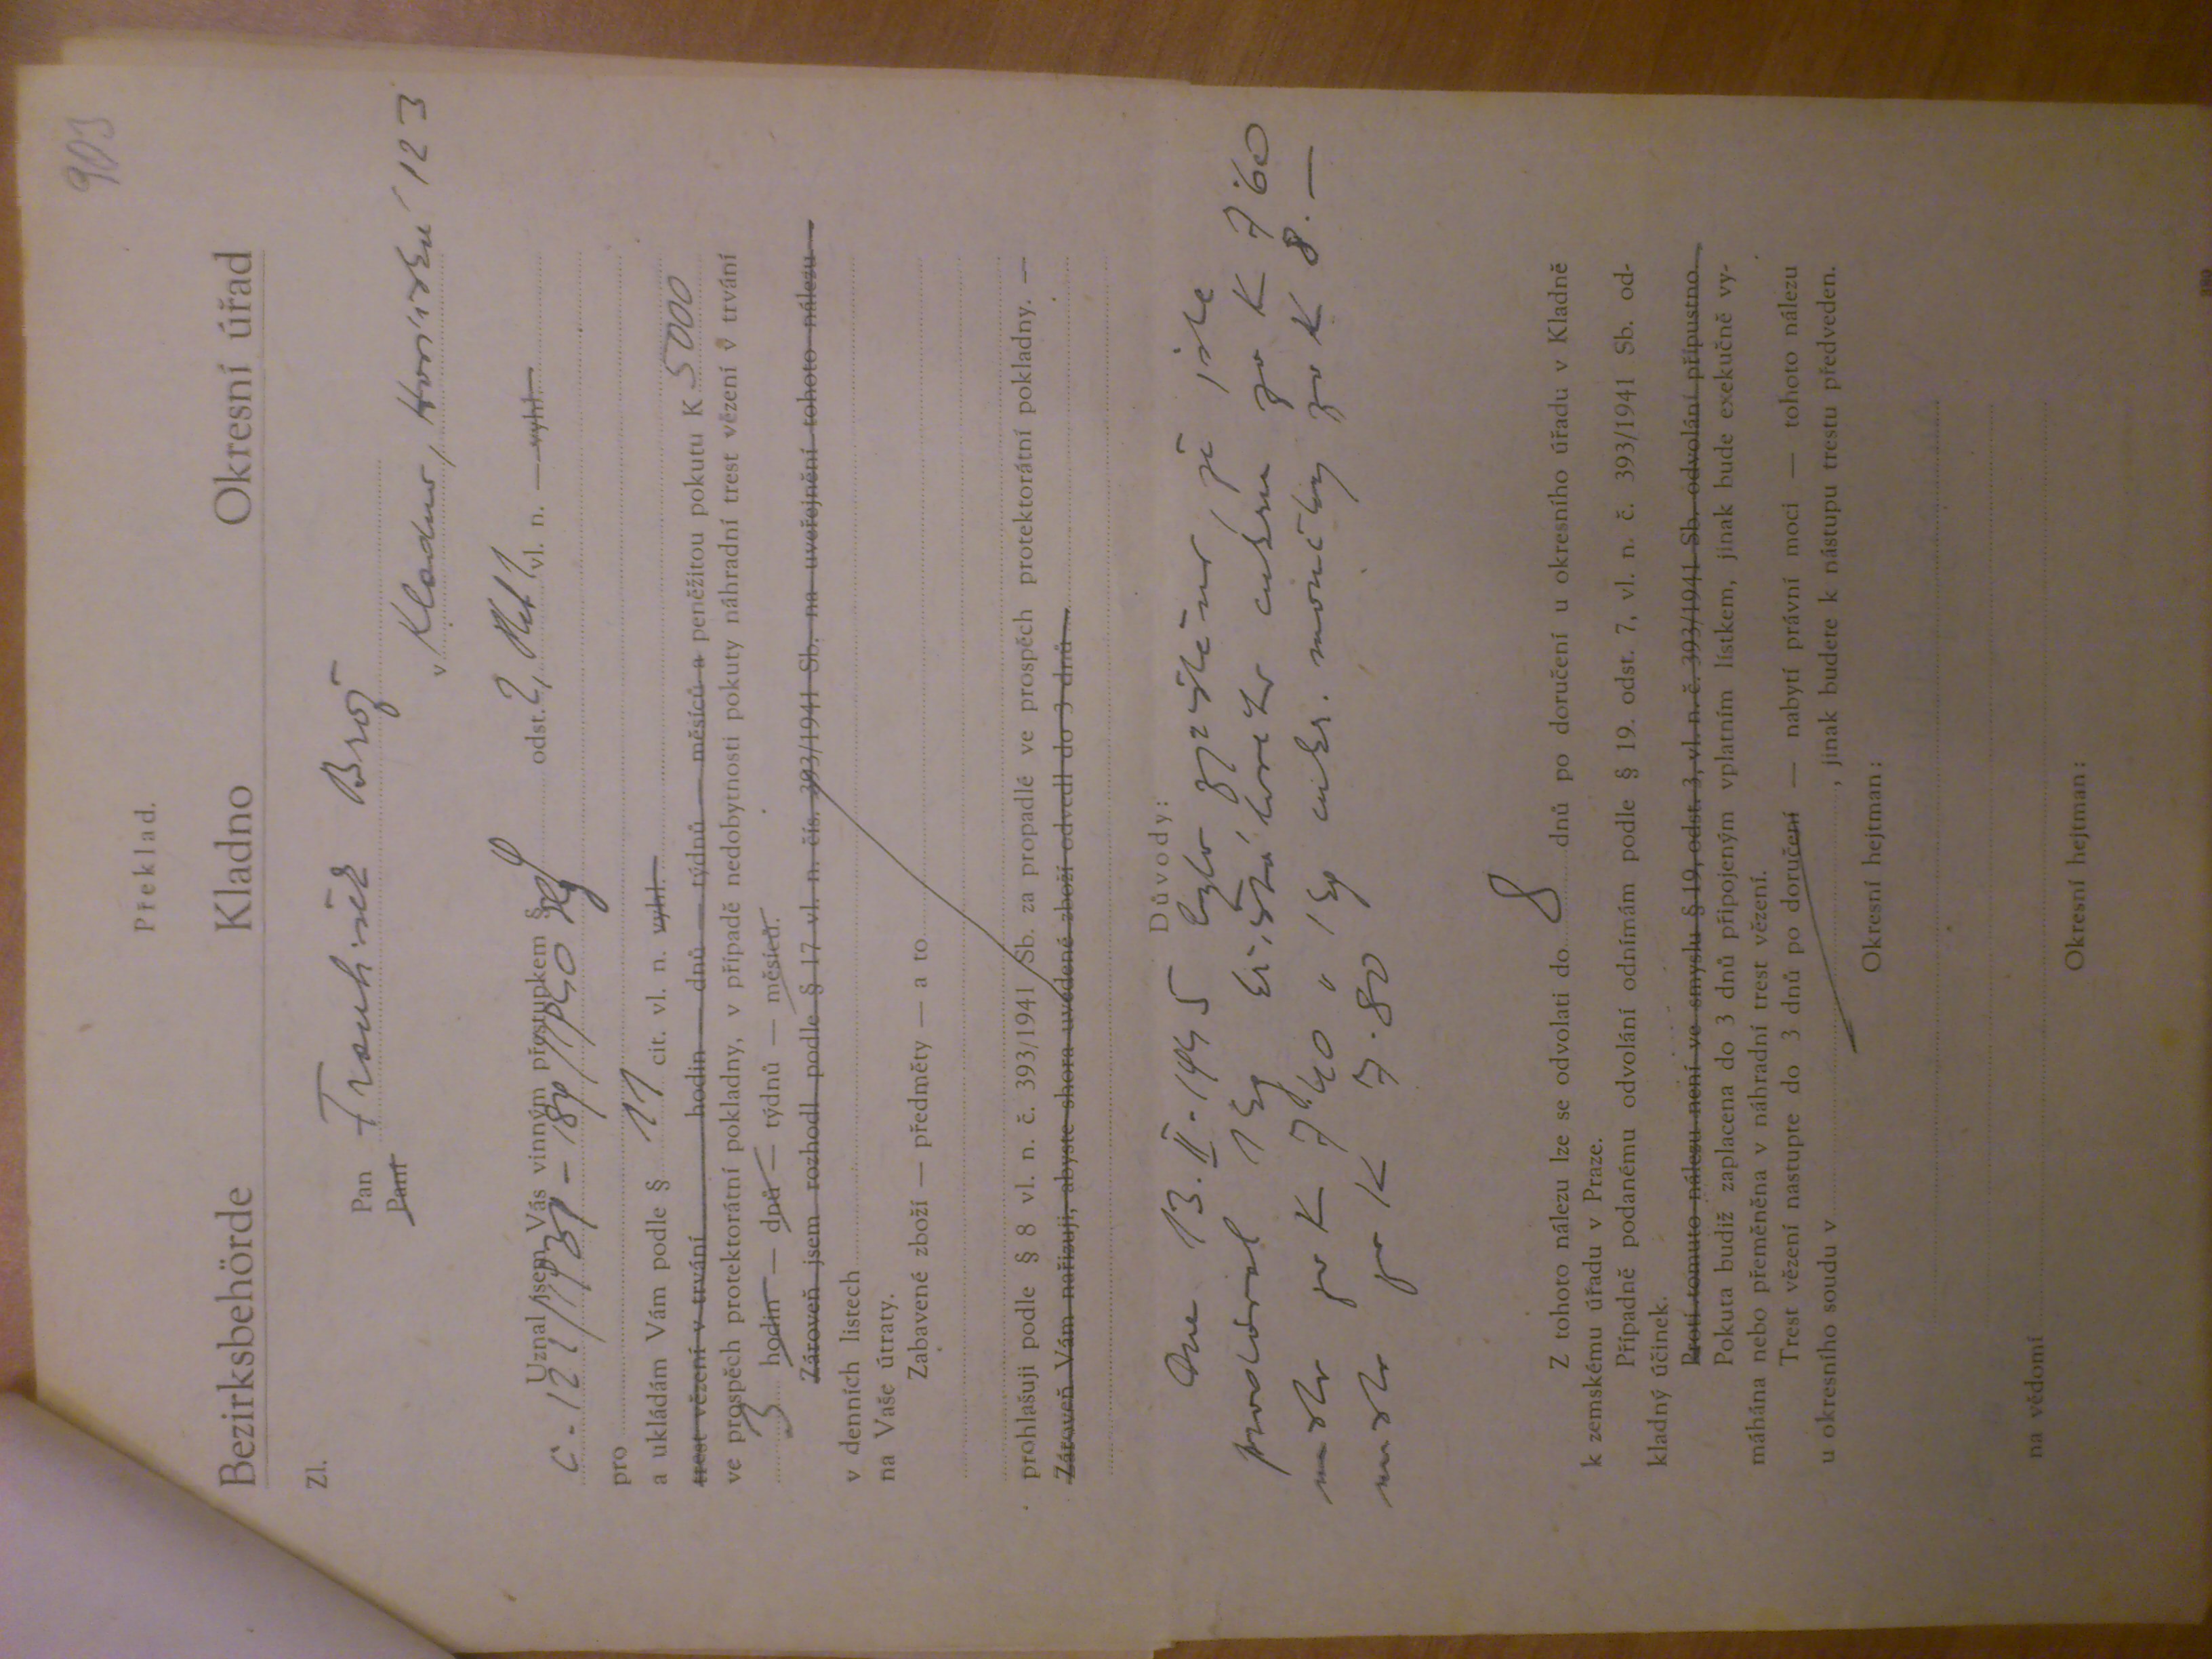 903
Překlad.
Bezirksbehörde Kladno Okresní úřad
Zl.
Pan František Brož
Paní
v Kladno, 123
Uznal jsem Vás vinným přestupkem § 9 odst. 2, vl. n. — vyhl.
č. 121/1939 - 189/1940 Sb
pro
a ukládám Vám podle § 11 cit. vl. n. vyhl.
trest vězení v trvání hodin — dnů — týdnů — měsíců a peněžitou pokutu K 5000
ve prospěch protektorátní pokladny, v případě nedobytnosti pokuty náhradní trest vězení v trvání
3 hodin — dnů — týdnů — měsíců.
Zároveň jsem rozhodl podle § 17 vl. n. čís. 393/1941 Sb. na uveřejnění tohoto nálezu
v denních listech
na Vaše útraty.
Zabavené zboží — předměty — a to
prohlašuji podle § 8 vl. n. č. 393/1941 Sb. za propadlé ve prospěch protektorátní pokladny. —
Zároveň Vám nařizuji, abyste shora uvedené zboží odvedl do 3 dnů
Důvody:
Dne 13. II. 1945 bylo zjištěno, že jste
prodával 1 kg krištálového cukru za K 7·60
místo za K 7·40 a 1 kg cukr. moučky za K 8.—
místo za K 7·80
Z tohoto nálezu lze se odvolati do 8 dnů po doručení u okresního úřadu v Kladně
k zemskému úřadu v Praze.
Případně podanému odvolání odnímám podle § 19. odst. 7, vl. n. č. 393/1941 Sb. od-
kladný účinek.
Proti tomuto nálezu není ve smyslu § 19, odst. 3, vl. n. č. 393/1941 Sb. odvolání přípustno.
Pokuta budiž zaplacena do 3 dnů připojeným vplatním lístkem, jinak bude exekučně vy-
máhána nebo přeměněna v náhradní trest vězení.
Trest vězení nastupte do 3 dnů po doručení — nabytí právní moci — tohoto nálezu
u okresního soudu v , jinak budete k nástupu trestu předveden.
Okresní hejtman:
na vědomí
Okresní hejtman: